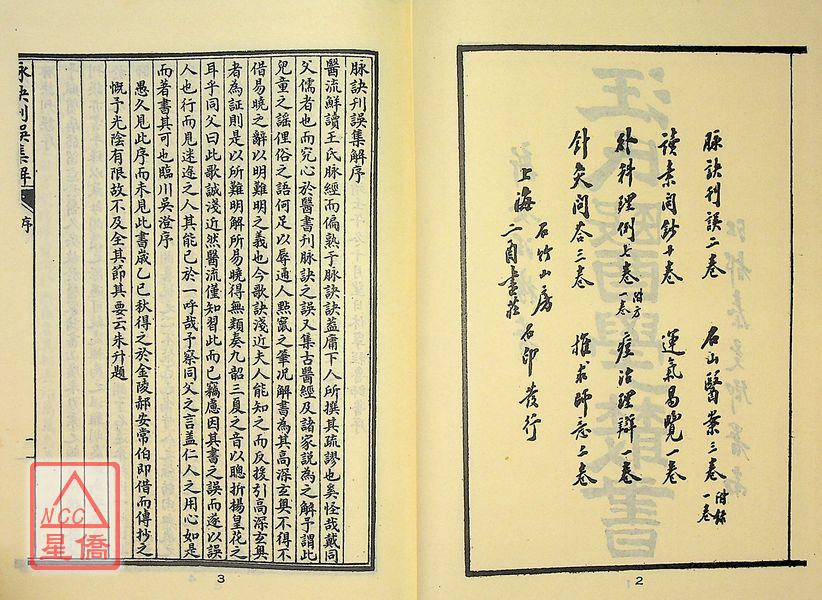 脉訣刊誤二卷 石山醫案三卷 附錄一卷
讀素問鈔十卷 運氣易覽一卷
外科理例七卷 附方一卷 痘治理辯一卷
針灸問答三卷 推求師意二卷
上海 石竹山房 二酉書莊 石印發行
2
脉訣刊誤集解序
醫流鮮讀王氏脉經而偏熟于脉訣訣葢庸下人所撰其疏謬也奚怪哉戴同
父儒者也而究心於醫書刊脉訣之誤又集古醫經及諸家說為之解予謂此
兒童之謡俚俗之語何足以辱通人點竄之筆况解書為其高深玄奥不得不
借易曉之辭以明難明之義也今歌訣淺近夫人能知之而反援引高深玄奥
者為証則是以所難明解所易曉得無類奏九韶三夏之音以聰折楊皇花之
耳乎同父曰此歌誠淺近然醫流僅知習此而已竊慮因其書之誤而遂以誤
人也行而見迷途之人其能已於一呼哉予察同父之言葢仁人之用心如是
而著書其可也臨川吳澄序
愚久見此序而未見此書歲乙巳秋得之於金陵郝安常伯即借而傳抄之
慨予光陰有限故不及全其節其要云朱升題
脉訣刊誤集解 序
3
NCC
星僑